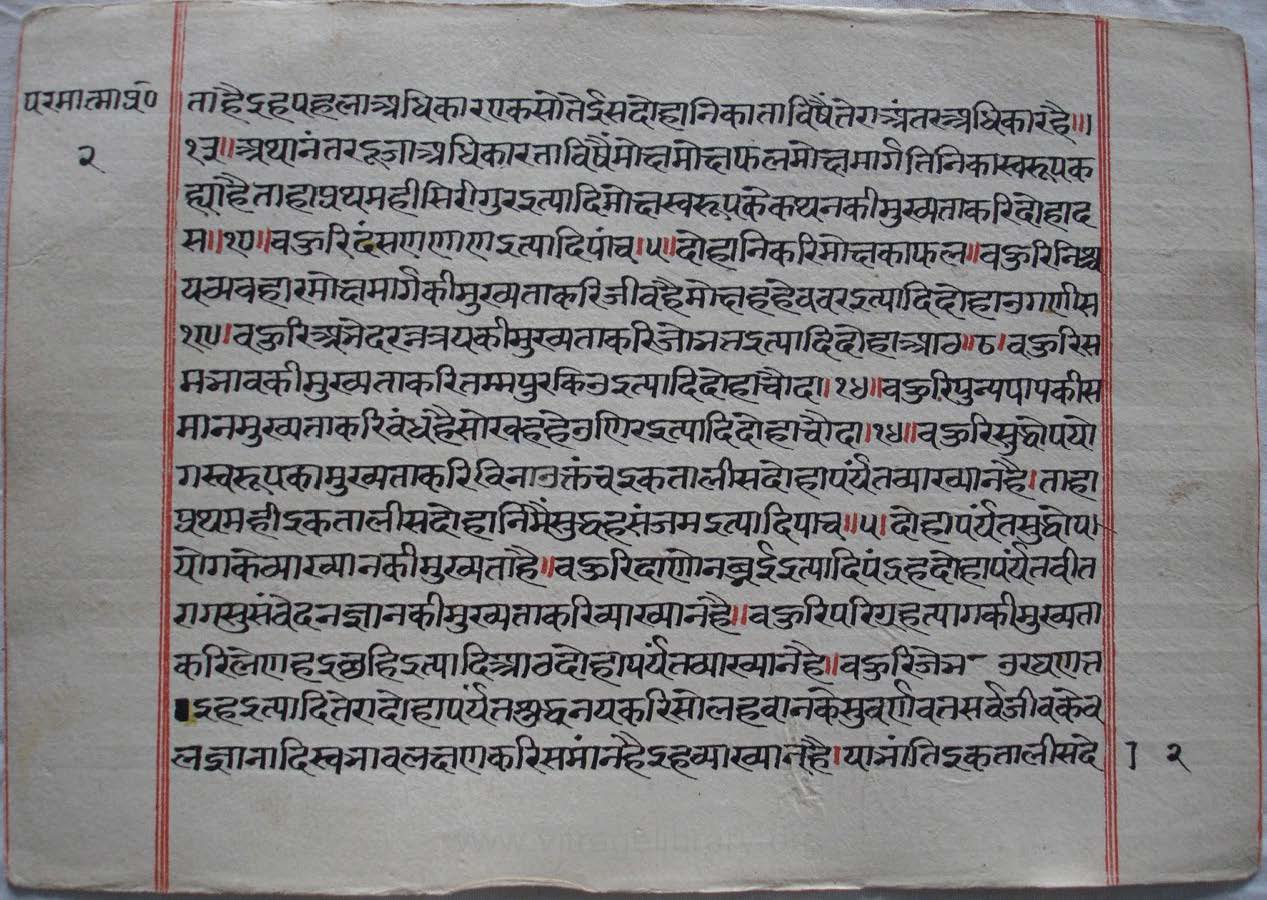 परमात्माप्र०
२
ता है इह पहला अधिकार एक सो तेईस दोहानि का ता विषैं तेरा अंतर अधिकार है॥।
१३॥ अथानंतर दूजा अधिकार ता विषैं मोक्ष मोक्षफल मोक्षमार्ग तिनि का स्वरूप क
ह्या है ताहा प्रथम ही सिरीगुर इत्यादि मोक्ष स्वरूप के कथन की मुख्यता करि दोहा द
स॥१०॥ बऊरि दंसण णाण इत्यादि पांच।५॥ दोहानि करि मोक्ष का फल॥ बऊरि निश्च
यव्यवहार मोक्षमार्ग की मुख्यता करि जीवहै मोक्खह हेउ वर इत्यादि दोहा उगणीस
१९। बऊरि अभेद रत्नत्रय की मुख्यता करि जो भत्त इत्यादि दोहा आठ॥८। बऊरि स
मभाव की मुख्यता करि तम्म पुरकिउ इत्यादि दोहा चौदा।१४॥ बऊरि पुन्य पाप की स
मान मुख्यता करि बंधहै मोरकहहेउ णिर इत्यादि दोहा चौदा।१४॥ बऊरि सुद्धोपयो
ग स्वरूप का मुख्यता करि विना उक्तं च इकतालीस दोहा पर्यंत व्याख्यान है। ताहा
प्रथम ही इकतालीस दोहानि मैं सुद्धह संजम इत्यादि पाच॥५। दोहा पर्यंत सुद्धोप
योग के व्याख्यान की मुख्यता है॥ बऊरि दाणे न इत्यादि पंद्रह दोहा पर्यंत वीत
राग सुसंवेदन ज्ञान की मुख्यता करि व्याख्यान है॥ बऊरि परिग्रह त्याग की मुख्यता
करि लेणह इछहि इत्यादि आठ दोहा पर्यंत व्याख्यान है॥ बऊरि जो भ- उ रयणत्त
इह इत्यादि तेरा दोहा पर्यंत शुद्ध नय करि सोलहवान के सुवर्णवत सर्व जीव केव
लज्ञानादि स्वभाव लक्षण करि समान है इह व्याख्यान है। या भांति इकतालीस दे
ा २